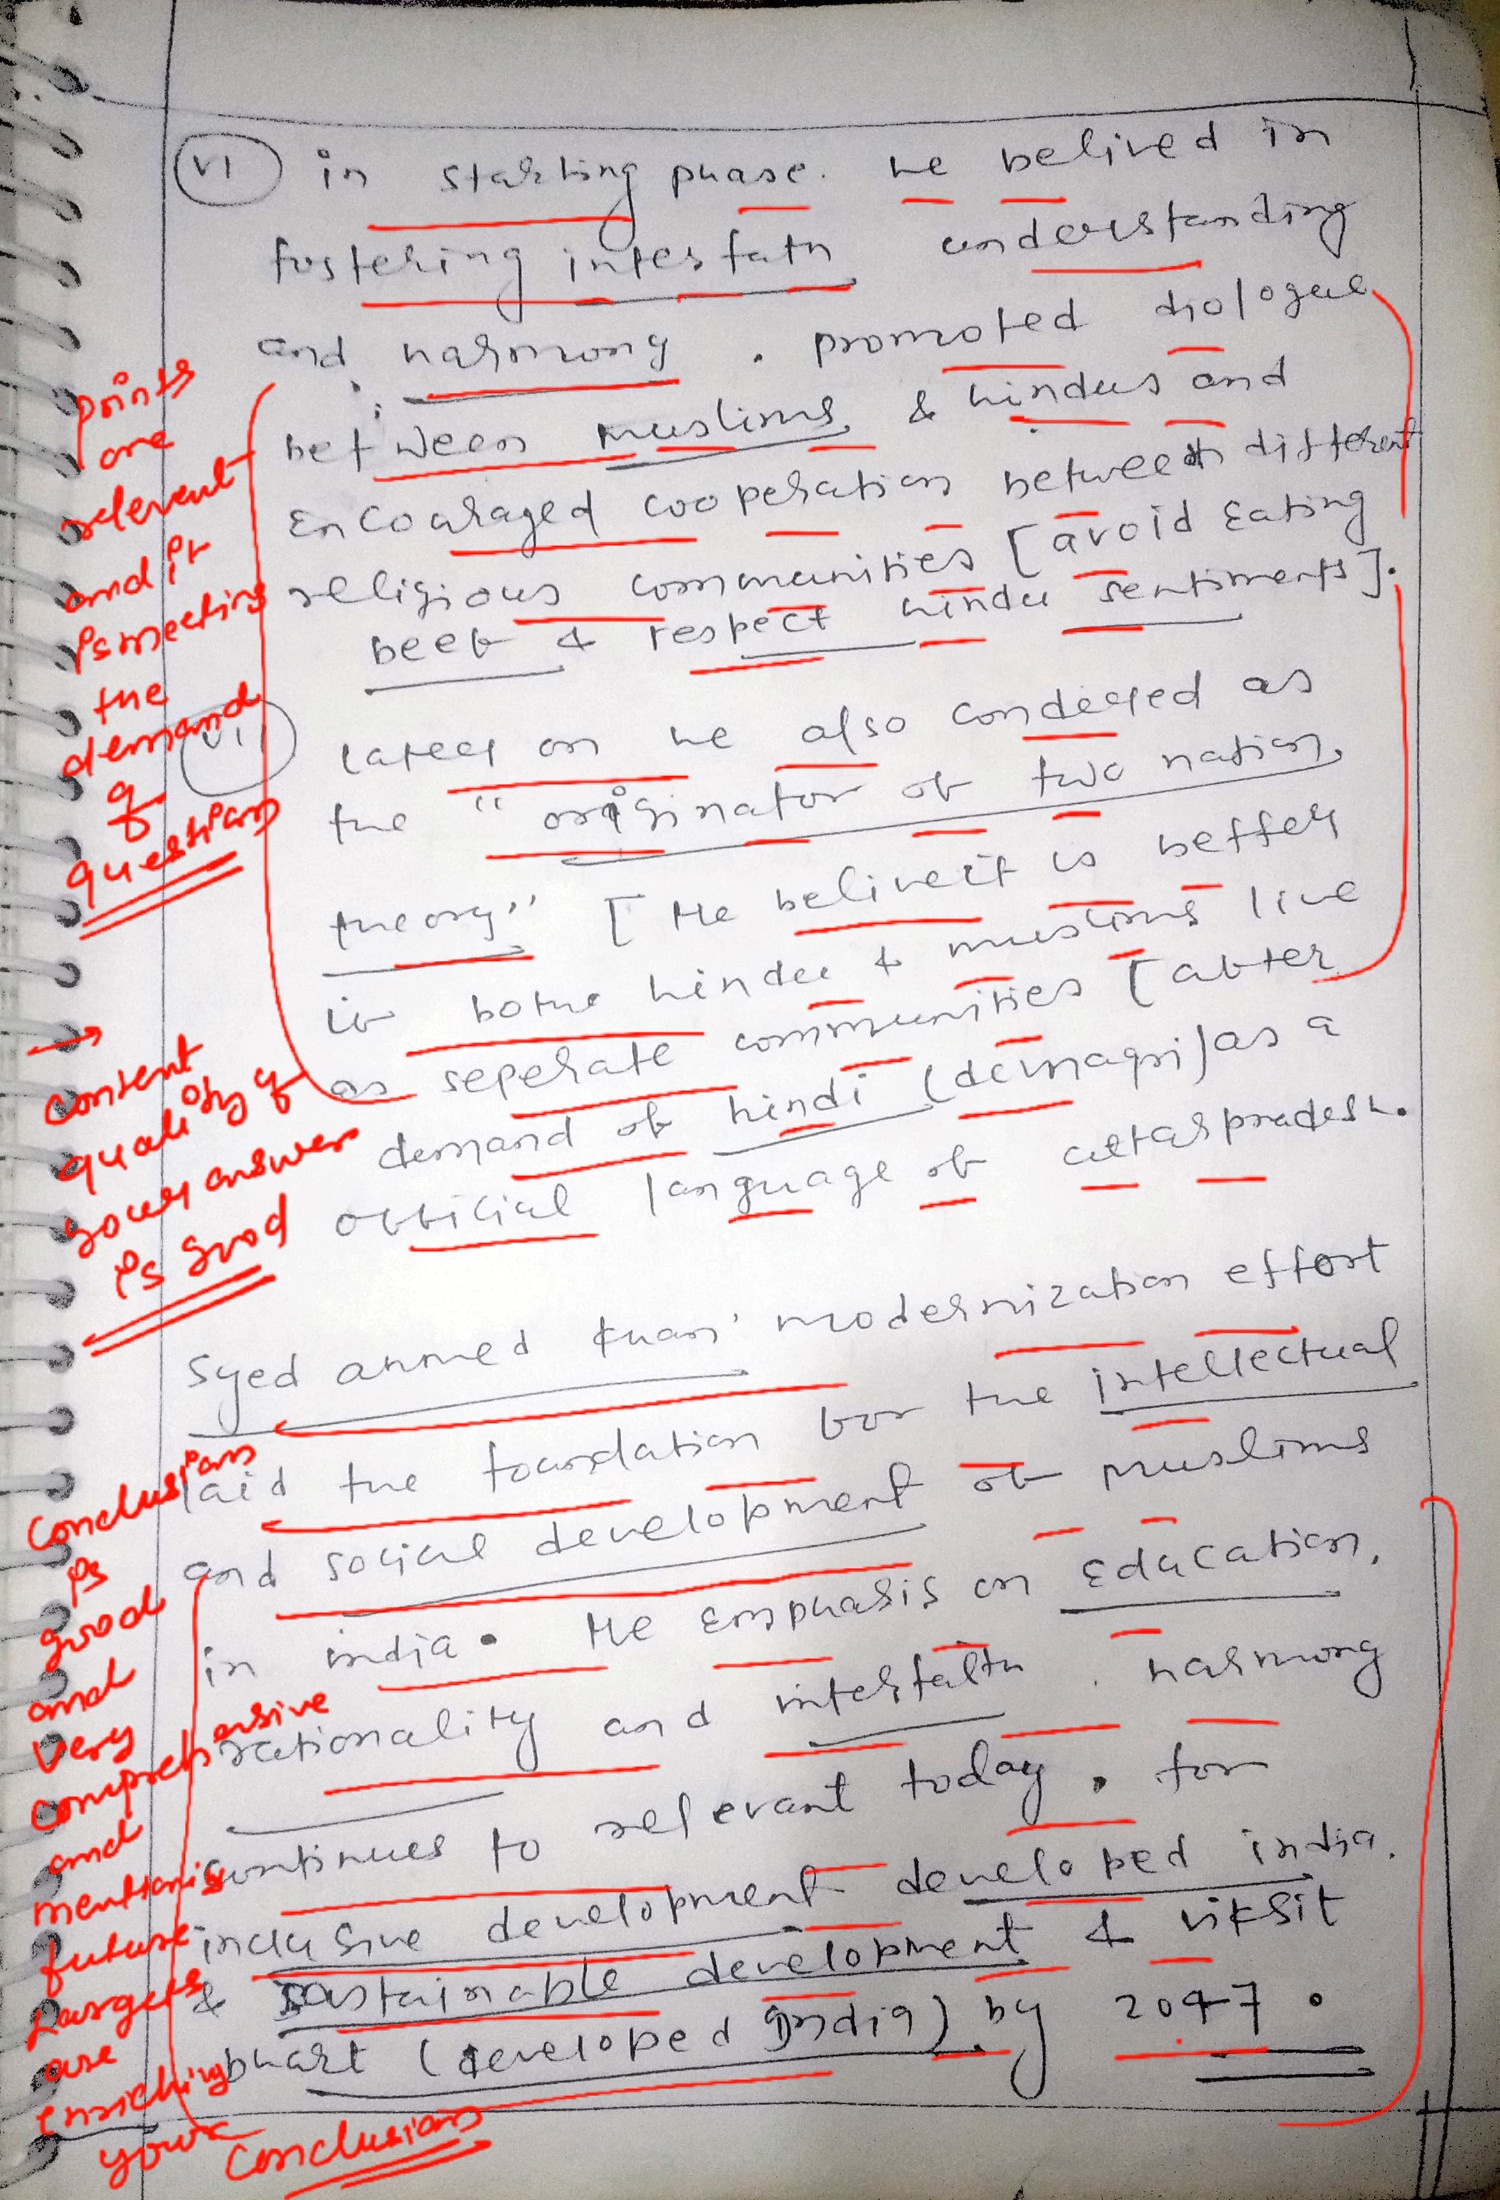 VI in starting phase. he belived in
fostering interfath understanding
and harmony. promoted diologue
between muslims & hindus and
Encouraged cooperation between different
religious communities [avoid Eating
beef & respect hindu sentiments].
VII later on he also condeyed as
the "originator of two nation
theory" [He beliveit is better
if bothe hindu & muslims live
as seperate communities [after
demand of hindi (devnagri) as a
official language of uttarpradesh.
Syed ahmed khan' modernization effort
laid the foundation for the intellectual
and social development of muslims
in india. He Emphasis on Education,
rationality and interfaith. harmony
continues to relevant today. for
inclusive development developed india.
& sustainable development & viksit
bhart (developed India) by 2047.
points
are
relevent
and it
is meeting
the
demand
of
question
→
content
quality of
your answer
is good
Conclusion
is
good
and
very
comprehensive
and
mentionig
future
targets
are
enriching
your
conclusion